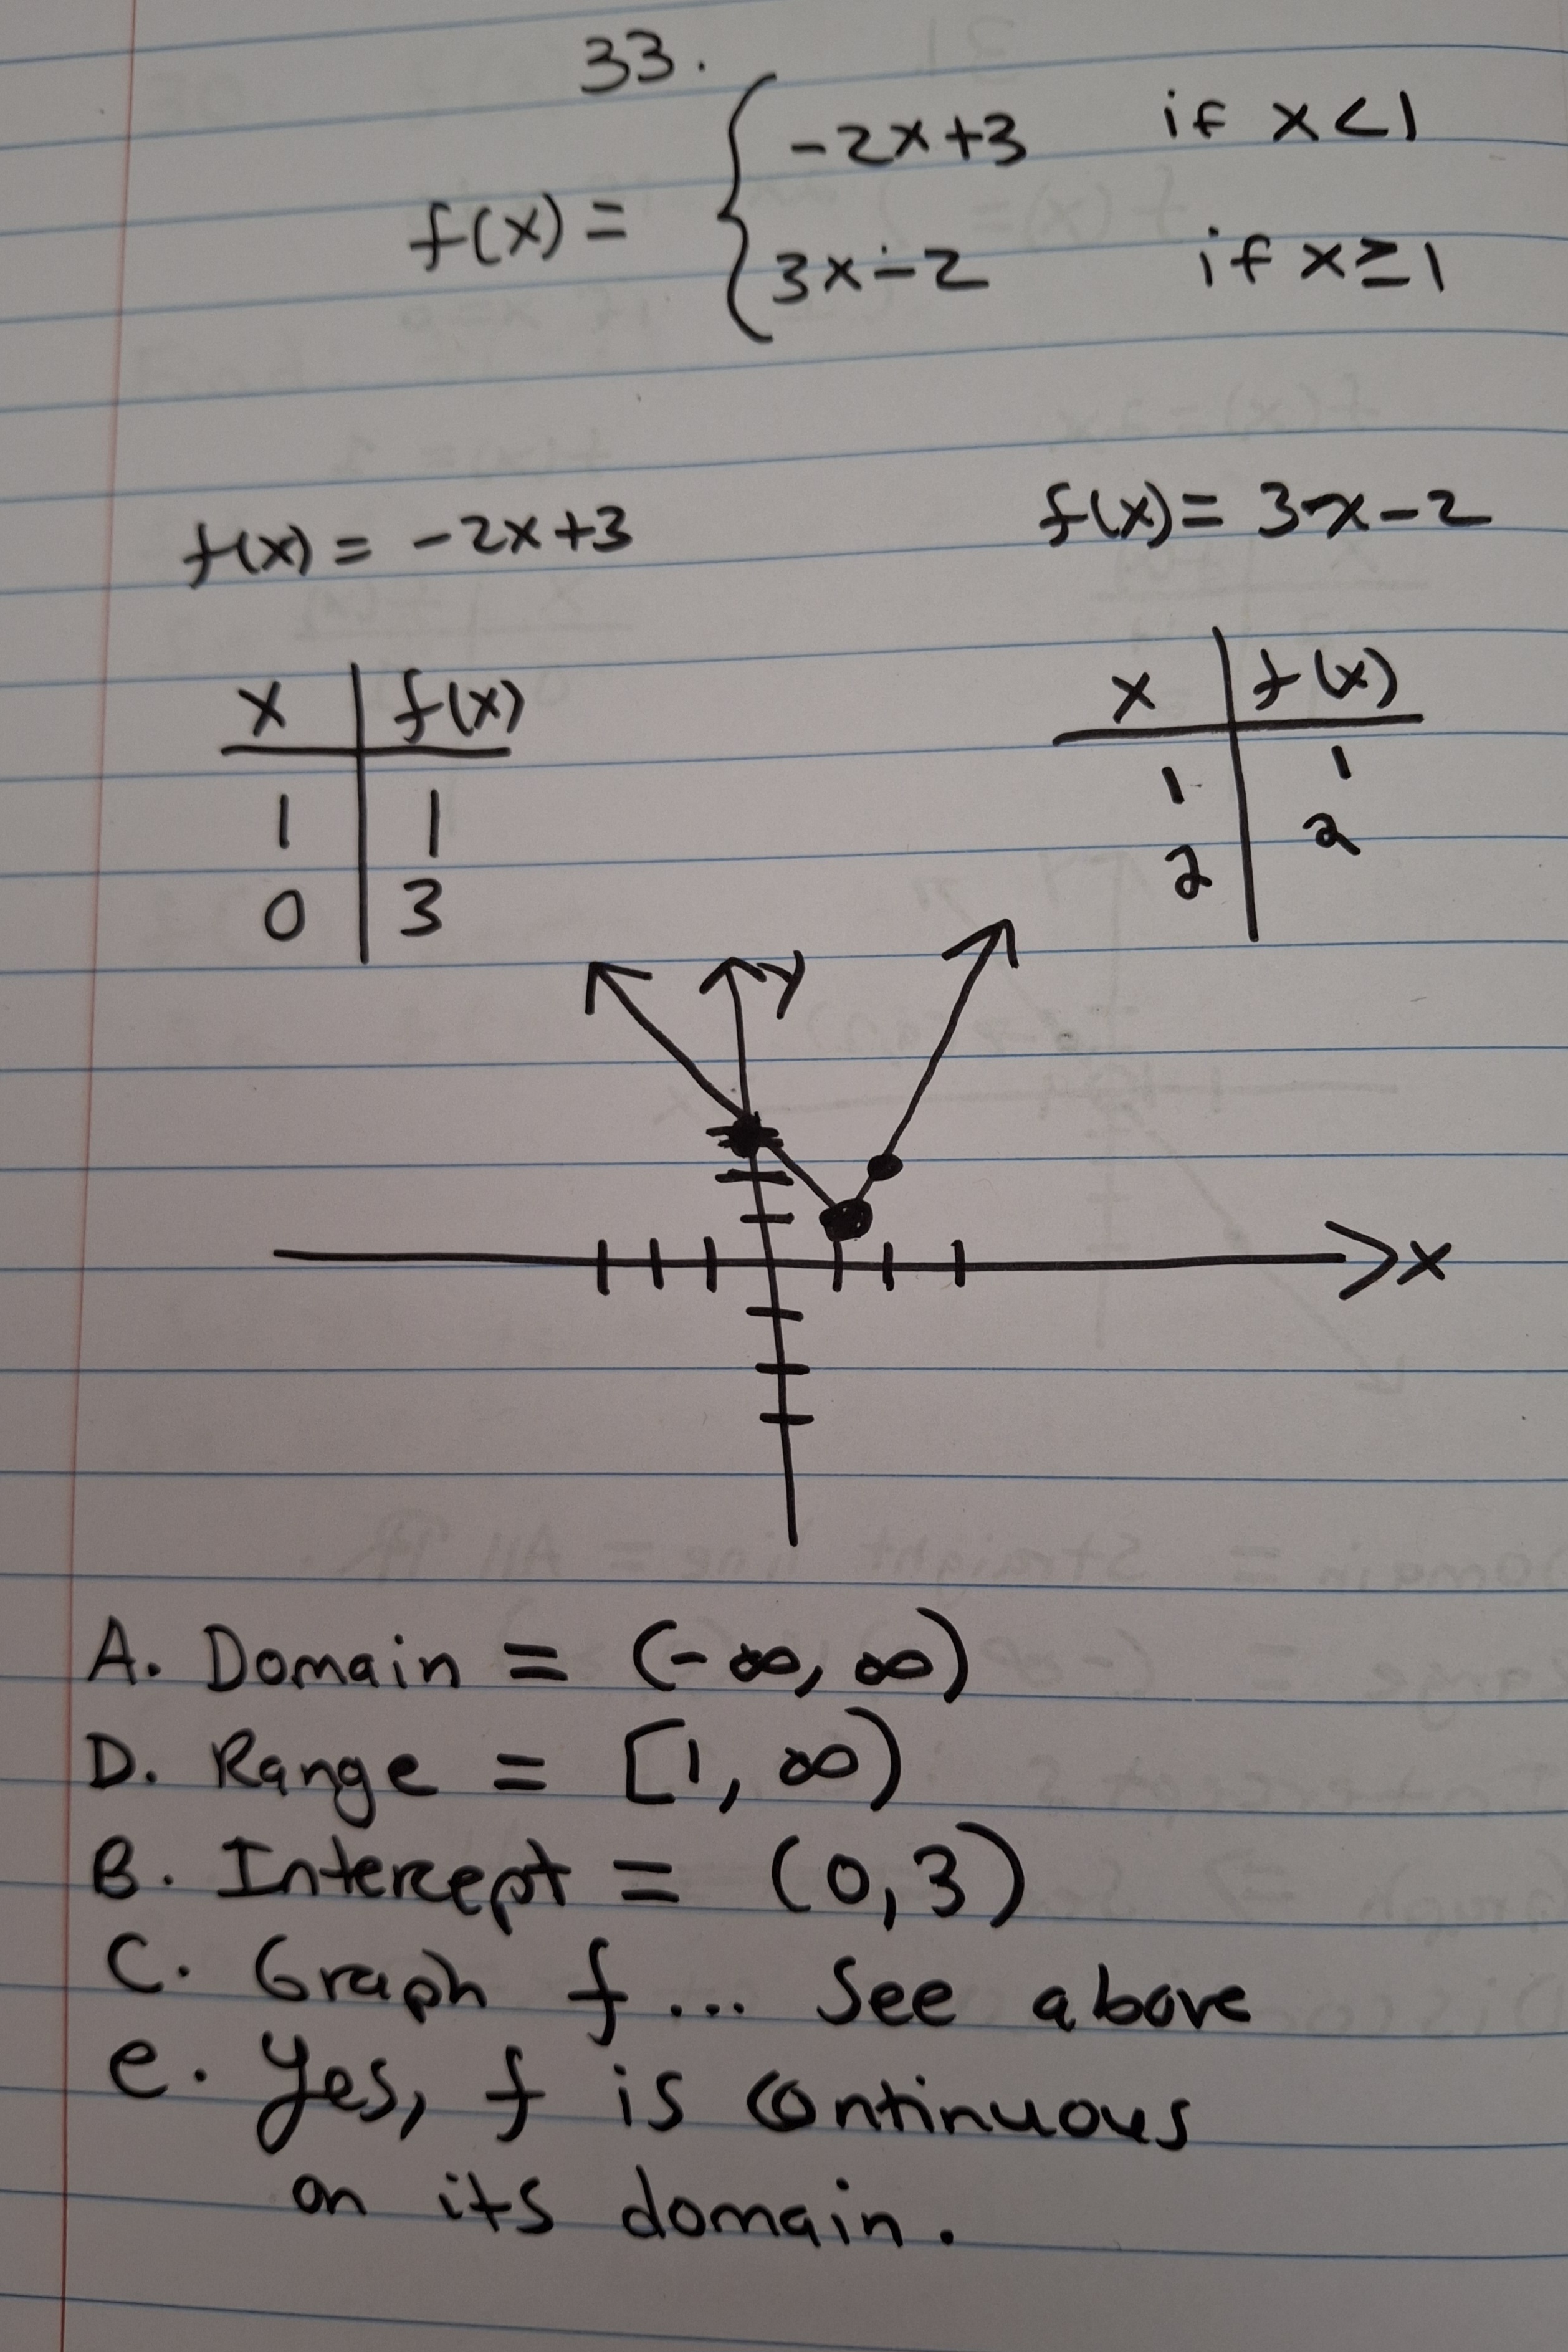 33.
f(x) = { -2x+3 if x<1
3x-2 if x≥1
f(x) = -2x+3
f(x) = 3x-2
x | f(x)
1 | 1
0 | 3
x | f(x)
1 | 1
2 | 2
y
x
A. Domain = (-∞, ∞)
D. Range = [1, ∞)
B. Intercept = (0,3)
C. Graph f... See above
e. Yes, f is continuous
on its domain.